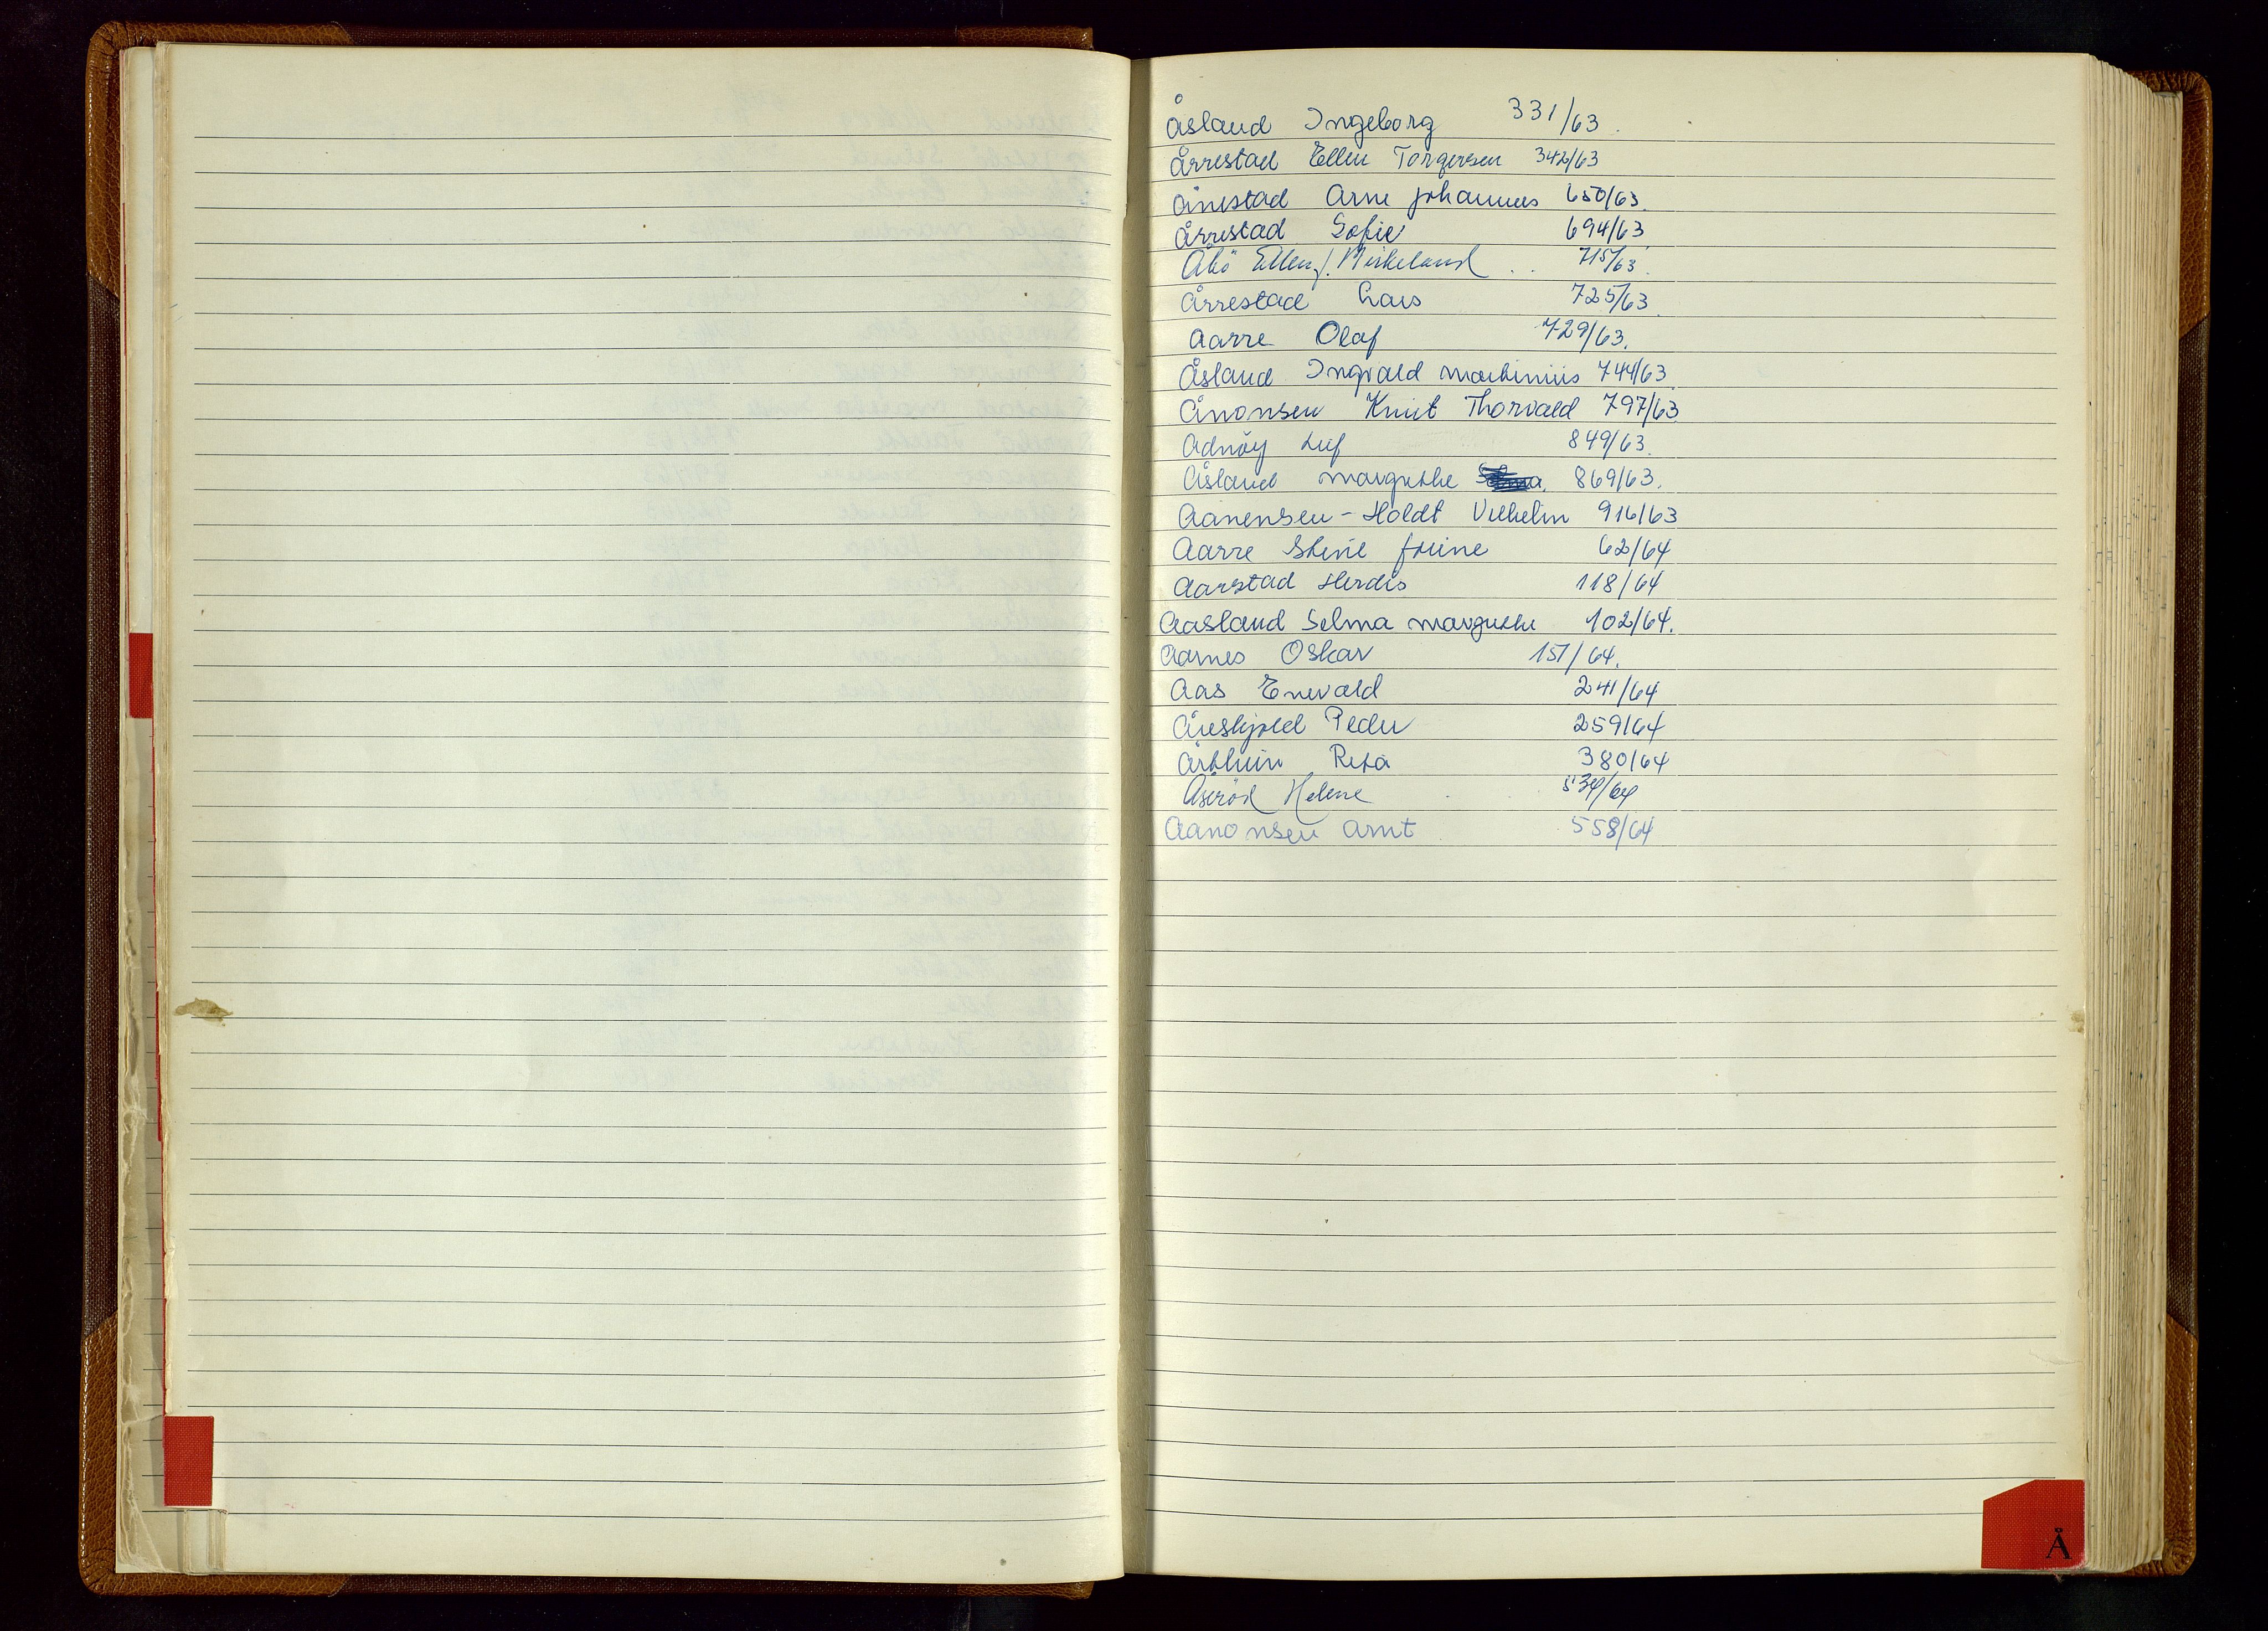 Åsland Ingeborg 331/63.
Årrestad Ellen Torgersen 342/63
Årrestad Arne Johannes 650/63.
Årrestad Sofie 694/63
Åbö Ellen f. Mirkeland 715/63.
Årrestad Lars 725/63.
Aarre Olaf 729/63.
Åsland Ingvald Martinius 744/63.
Ånonsen Knut Thorvald 797/63.
Adnöy Leif 849/63.
Åsland Margrethe 869/63.
Aanensen-Holdt Vilhelm 916/63
Aarre Stine 62/64
Aarstad Herdis 118/64
Aasland Selma Margrethe 102/64.
Aarnes Oskar 151/64.
Aas Enevald 241/64
Åreskjold Peder 259/64
380/64
Åseröd Helene 534/64
Aanonsen Arnt 558/64
Å